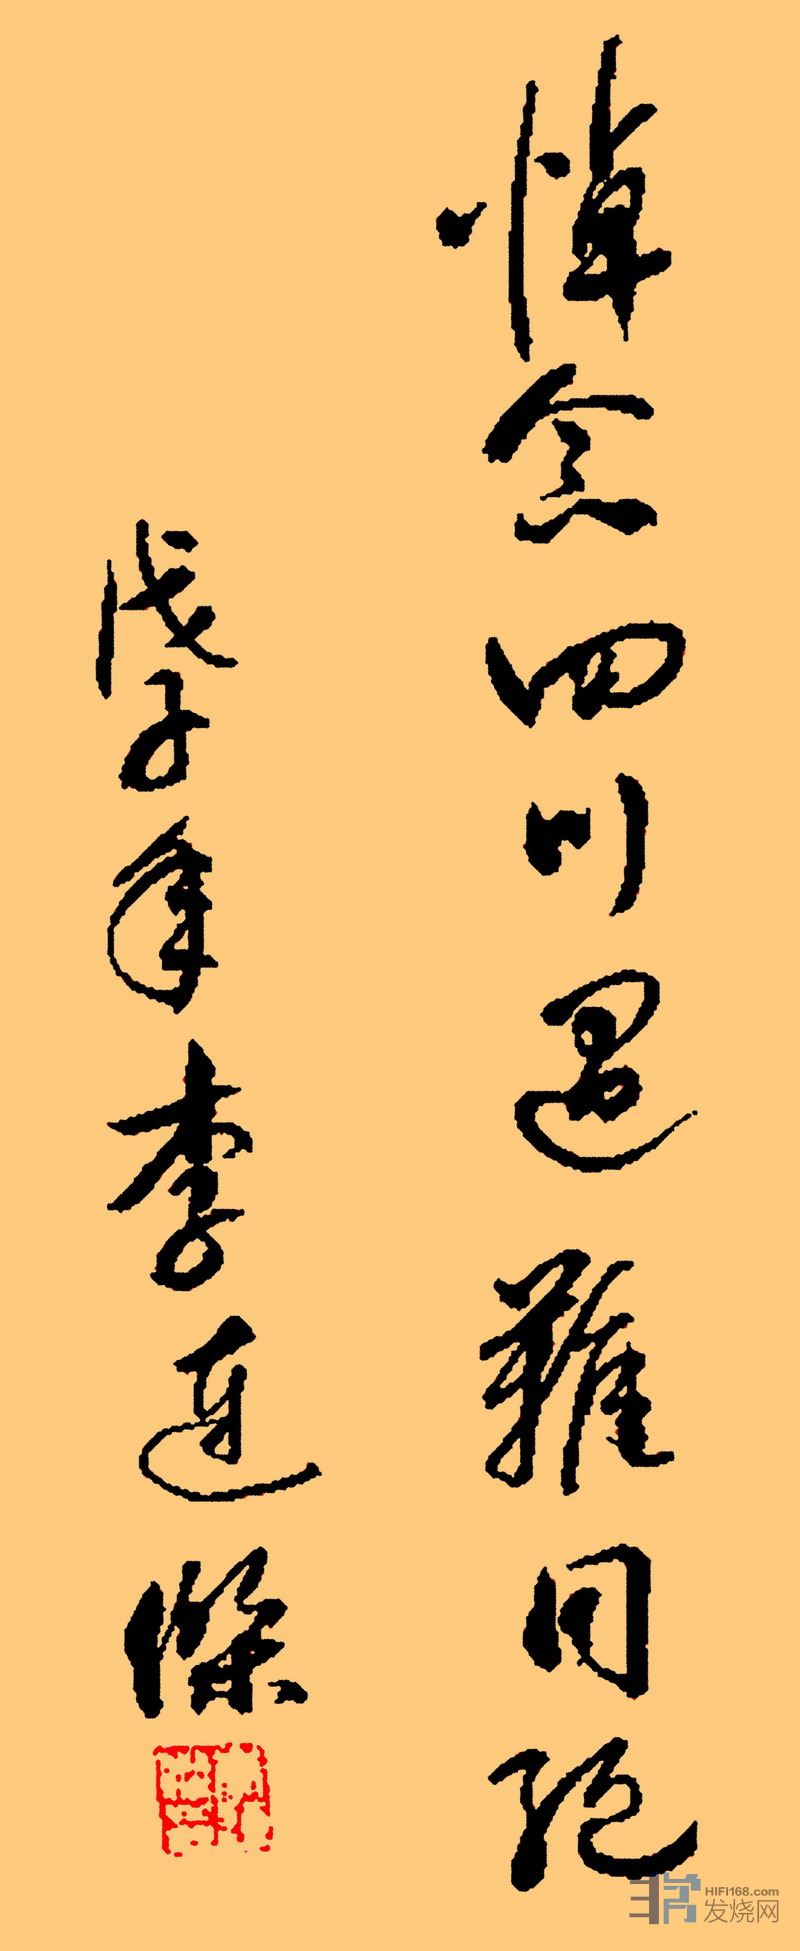 悼念四川遇難同胞
戊子年李连傑
HIFI168.com
发烧网